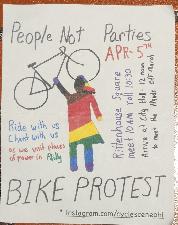 People Not Parties
APR. 5TH
Rittenhouse Square
meet 10AM roll 10:30
Arrive at City Hall 12 noon
to meet the
Ride with us
Chant with us
as we visit places
of power in Philly
BIKE PROTEST